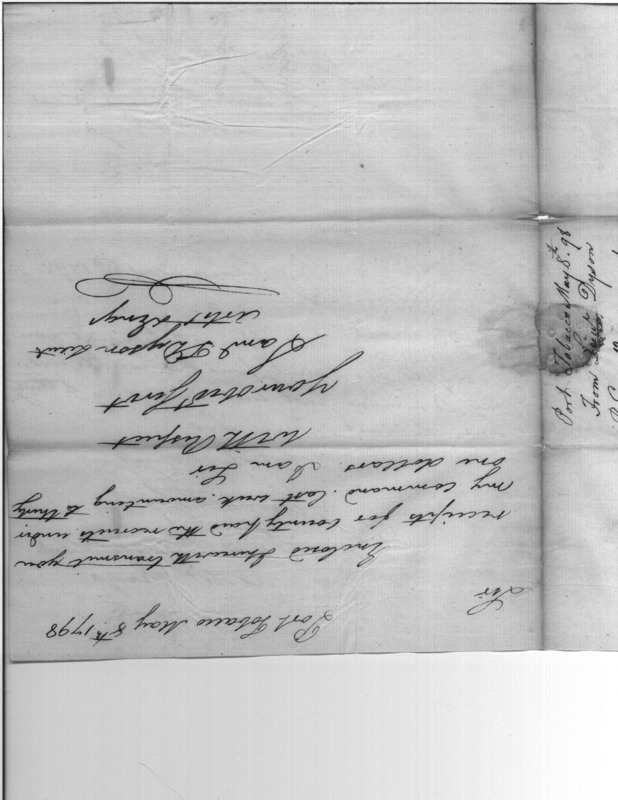 Port Tobacco May 8th 1798
Sir
Enclosed I herewith transmit you
receipts for bounty paid the recruits under
my command last week, amounting to thirty
one dollars. I am Sir
With Respect
Your Obdt Servt
Saml T Dyson Lieut
Artil & Engrs
Port Tobacco May 8th 98
From Lieut Dyson